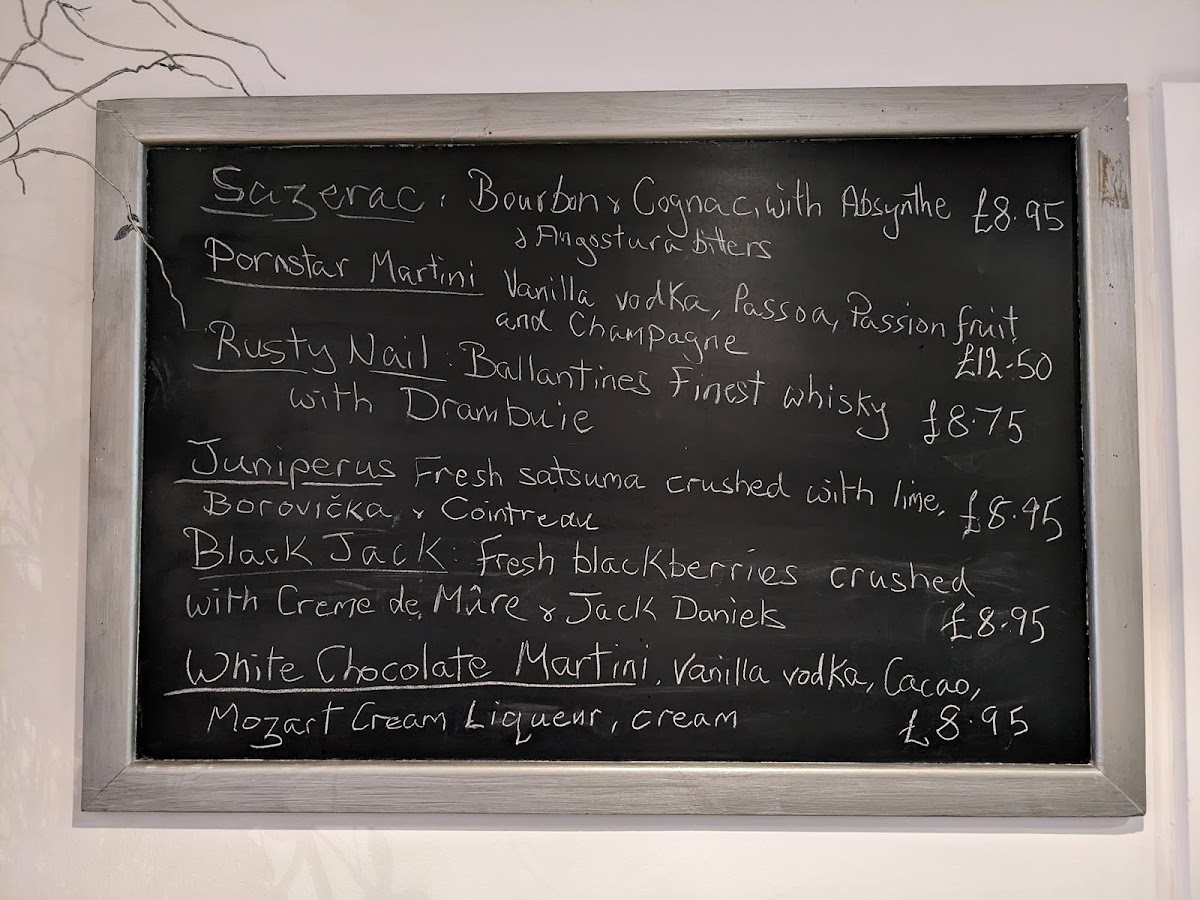 Sazerac: Bourbon & Cognac, with Absynthe £8.95
& Angostura bitters
Pornstar Martini Vanilla vodka, Passoa, Passion fruit
and Champagne £12.50
Rusty Nail: Ballantines Finest whisky
with Drambuie £8.75
Juniperus Fresh satsuma crushed with lime, £8.95
Borovička, & Cointreau
Black Jack: Fresh blackberries crushed
with Creme de Mûre & Jack Daniels £8.95
White Chocolate Martini. Vanilla vodka, Cacao,
Mozart Cream Liqueur, cream £8.95